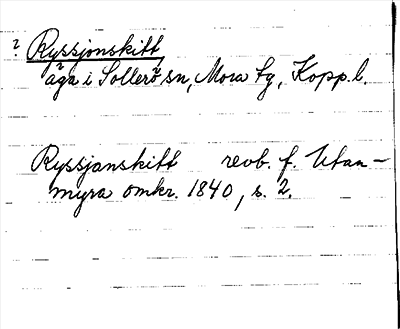 ? Ryssjonskitt,
äga i Sollerö sn, Mora tg, Kopp. l.
Ryssjanskitt revb. f. Utan-
myra omkr. 1840, s. 2.